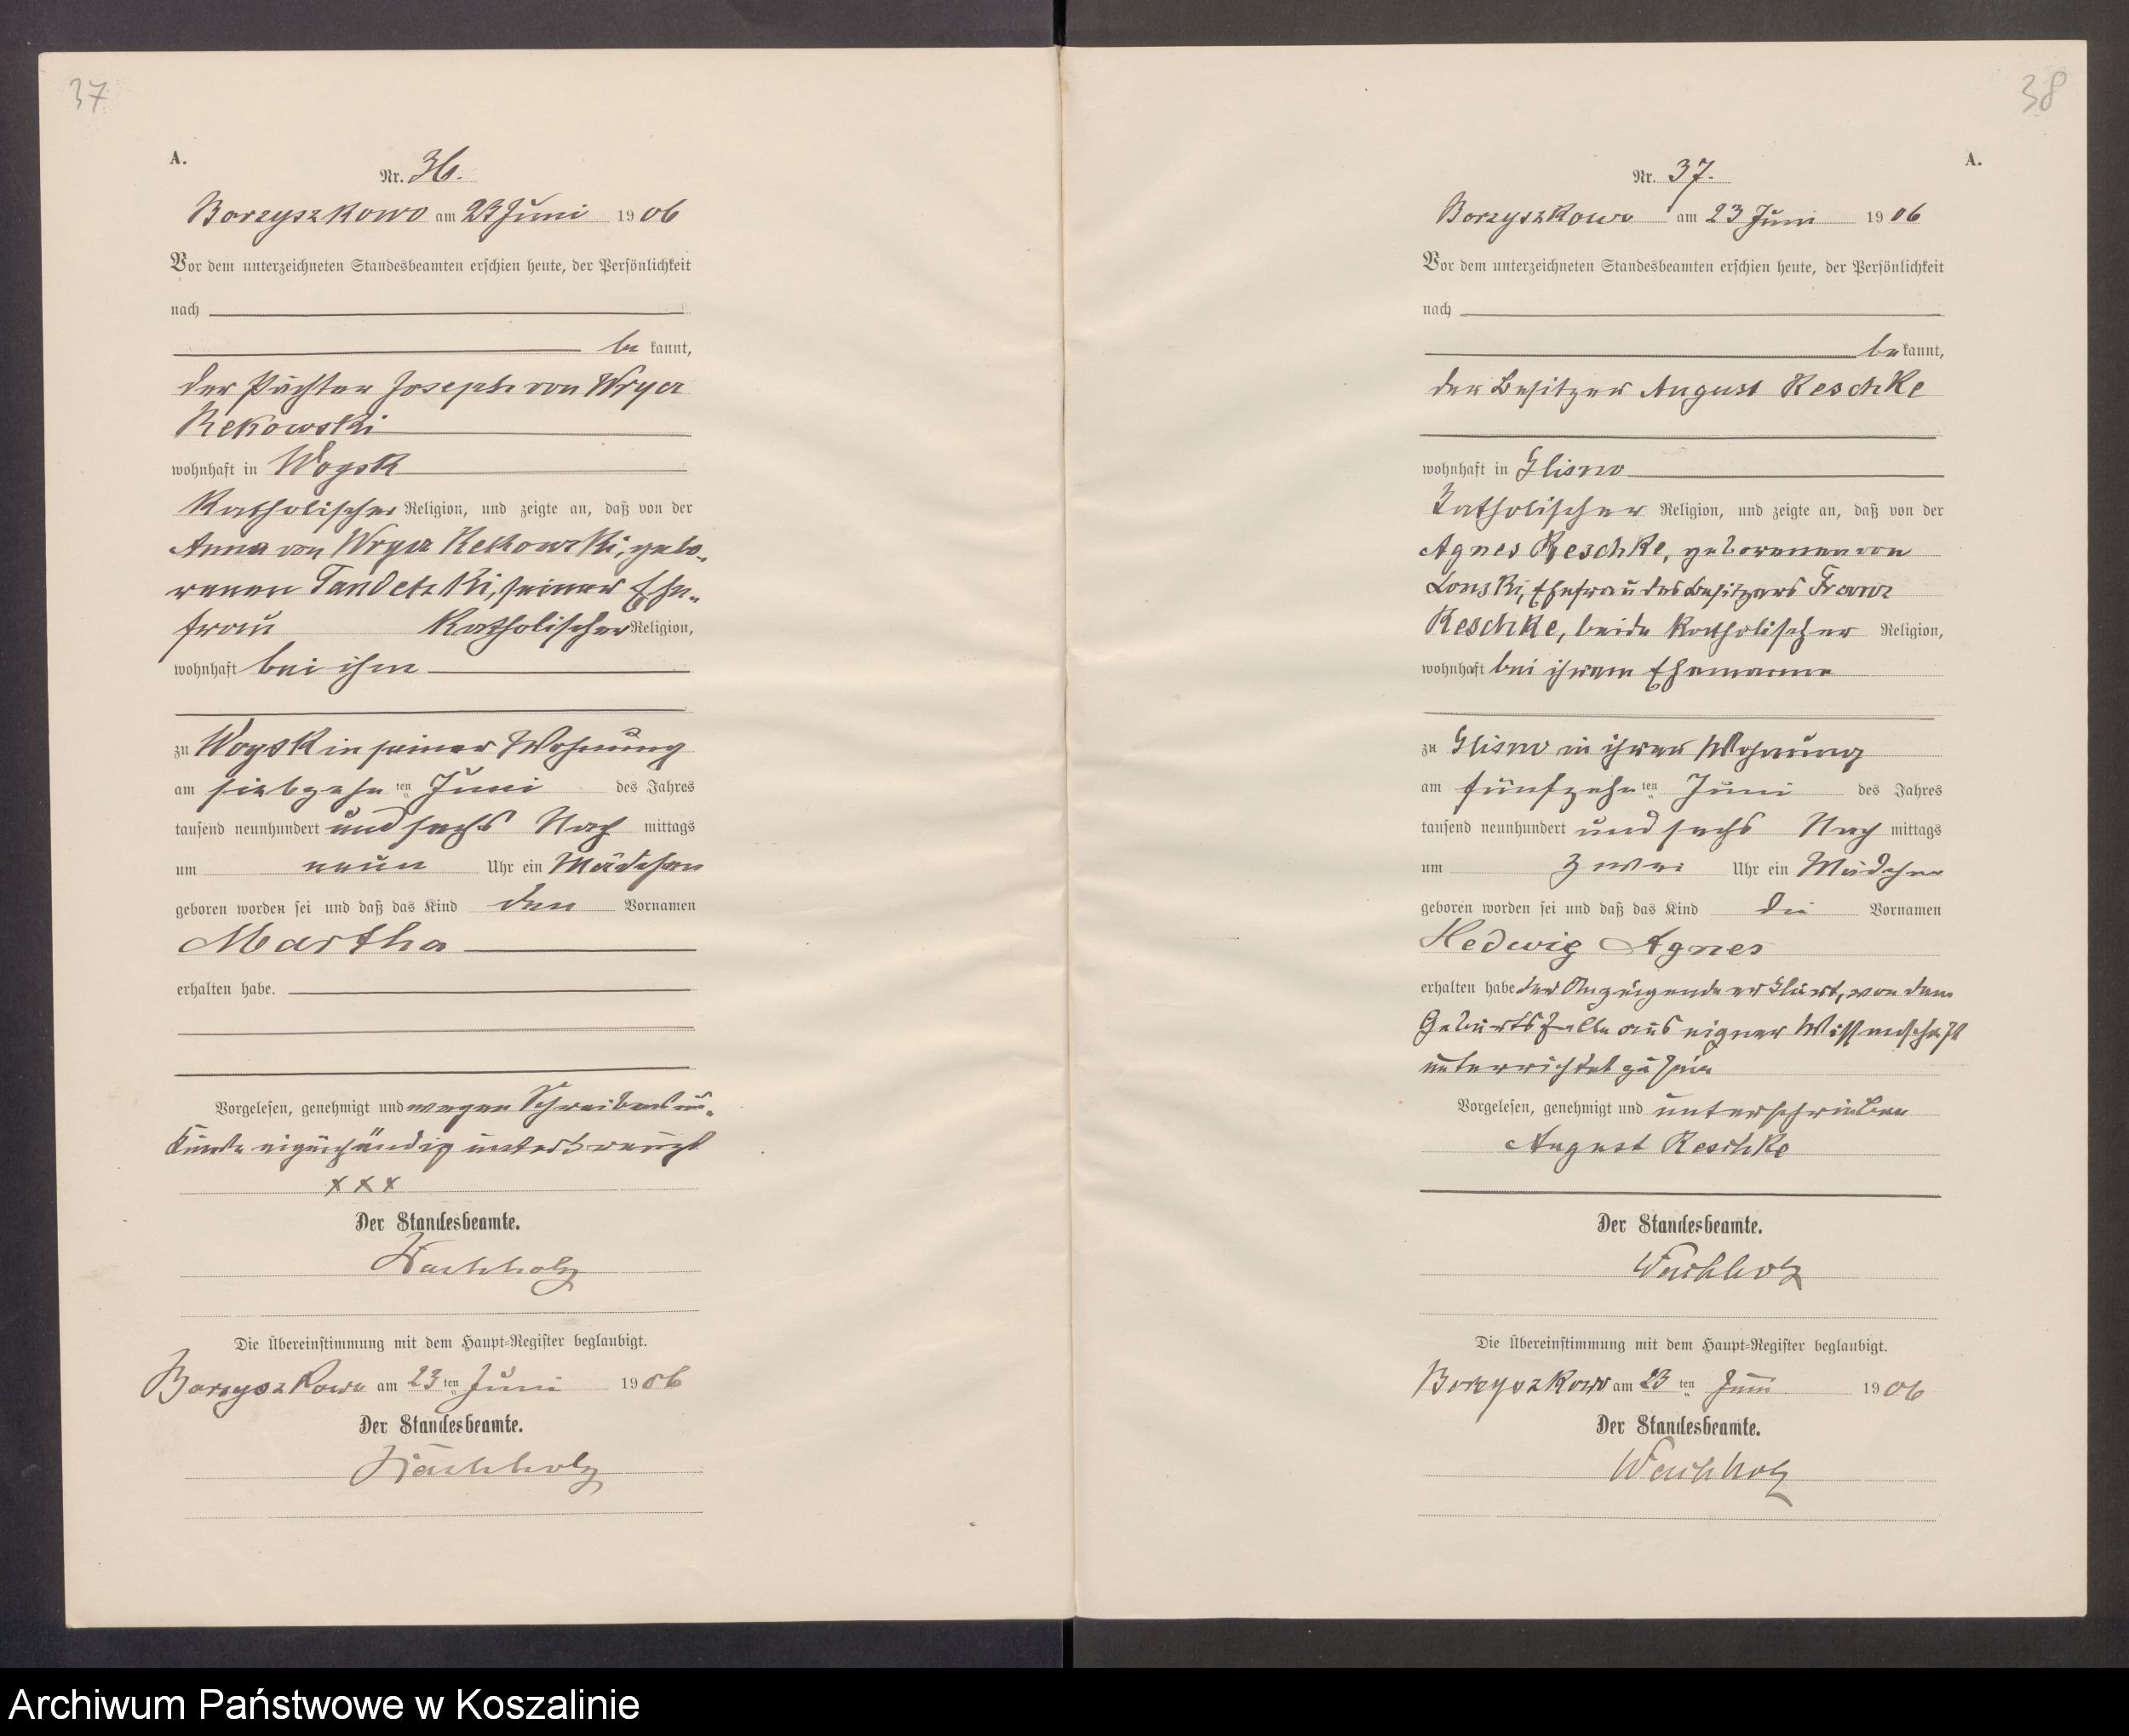 37
A.
Nr. 36.
Borzyszkowo am 23 Juni 1906
Vor dem unterzeichneten Standesbeamten erschien heute, der Persönlichkeit
nach
be kannt,
der Pächter Joseph von Wrycz
Rekowski
wohnhaft in Wogsk
katholischer Religion, und zeigte an, daß von der
Anna von Wrycz Rekowski, gebo-
renen Tandetzki, seiner Ehe-
frau katholischer Religion,
wohnhaft bei ihm
zu Wogsk in seiner Wohnung
am siebzehnten Juni des Jahres
tausend neunhundert und sechs Nach mittags
um neun Uhr ein Mädchen
geboren worden sei und daß das Kind den Vornamen
Martha
erhalten habe.
Vorgelesen, genehmigt und wegen Schreibensun-
kunde eigenhändig unterkreuzt
xxx
Der Standesbeamte.
Wachholz
Die Übereinstimmung mit dem Haupt-Register beglaubigt.
Borzyszkowo am 23 ten Juni 1906
Der Standesbeamte.
Wachholz
38
A.
Nr. 37.
Borzyszkowo am 23 Juni 1906
Vor dem unterzeichneten Standesbeamten erschien heute, der Persönlichkeit
nach
be kannt,
der Besitzer August Reschke
wohnhaft in Glisno
katholischer Religion, und zeigte an, daß von der
Agnes Reschke, geborenen von
Lonski, Ehefrau des Besitzers Franz
Reschke, beide katholischer Religion,
wohnhaft bei ihrem Ehemanne
zu Glisno in ihrer Wohnung
am fünfzehnten Juni des Jahres
tausend neunhundert und sechs Nach mittags
um zwei Uhr ein Mädchen
geboren worden sei und daß das Kind die Vornamen
Hedwig Agnes
erhalten habe der Anzeigende erklärt, von dem
Geburtsfalle aus eigner Wissenschaft
unterrichtet zu sein
Vorgelesen, genehmigt und unterschrieben
August Reschke
Der Standesbeamte.
Wachholz
Die Übereinstimmung mit dem Haupt-Register beglaubigt.
Borzyszkowo am 23 ten Juni 1906
Der Standesbeamte.
Wachholz
Archiwum Państwowe w Koszalinie